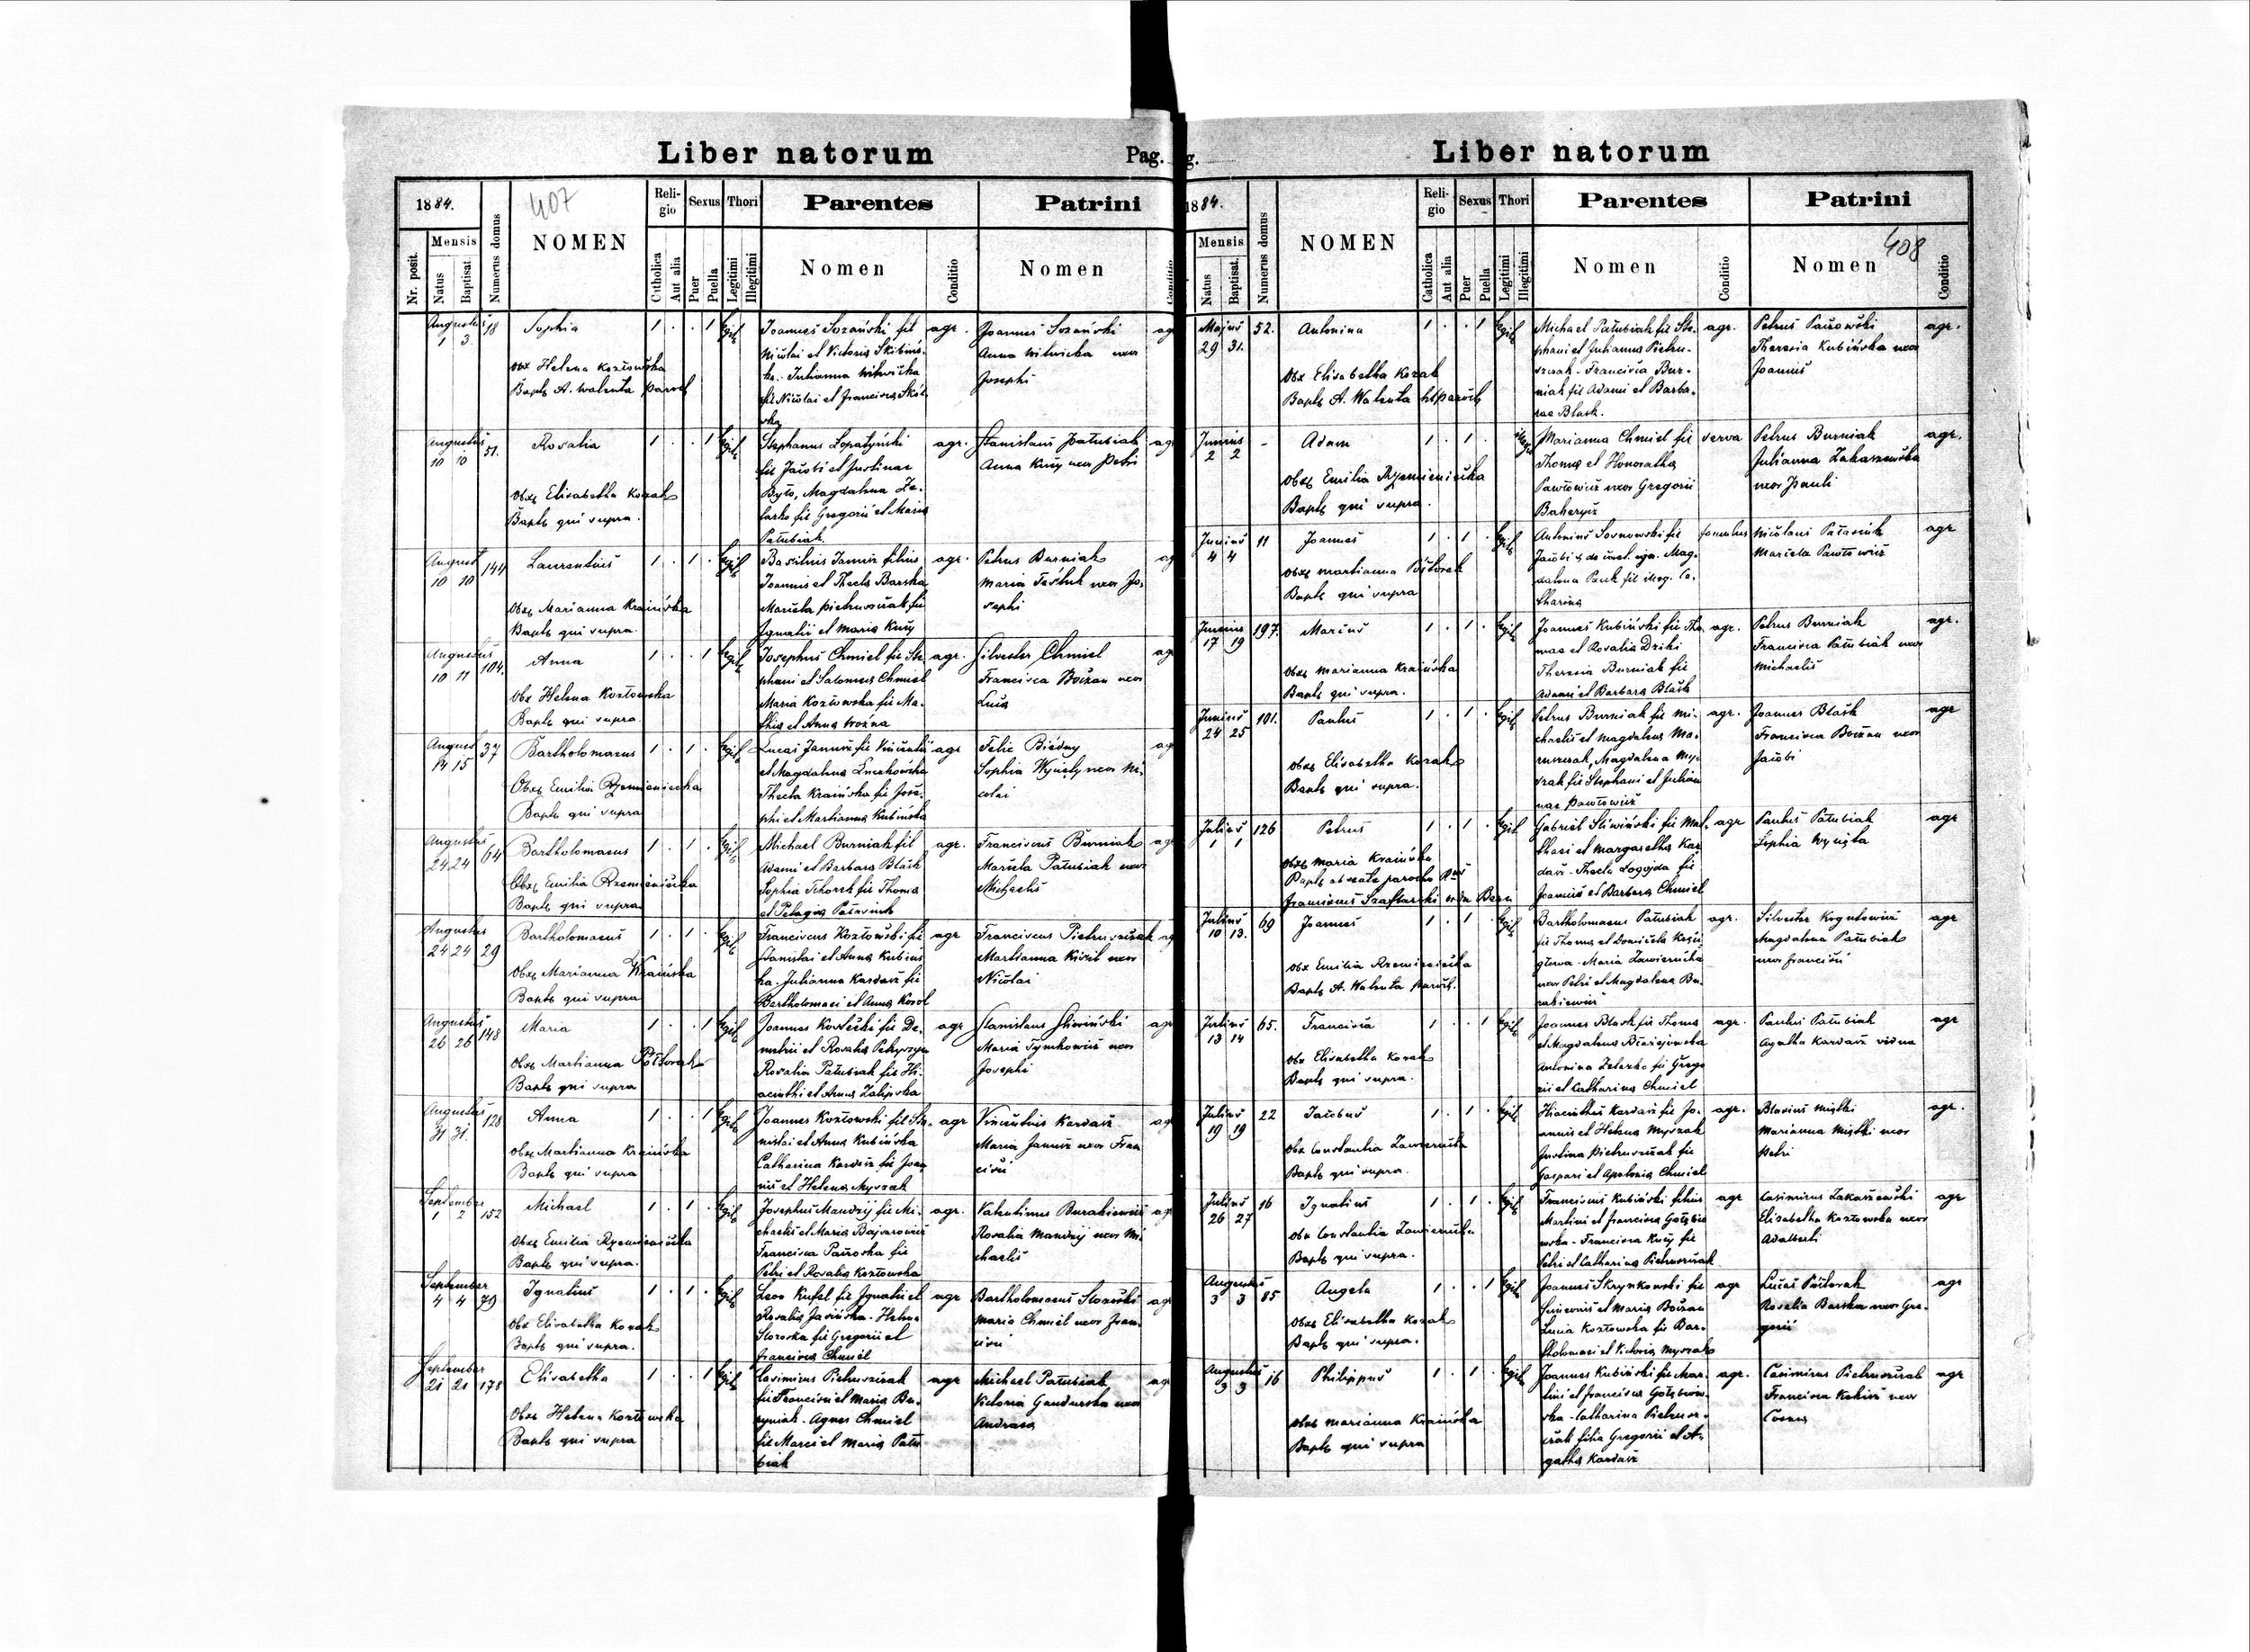 Liber natorum
Pag.
1884.
407
Nr. posit.
Mensis
Natus
Baptisat.
Numerus domus
NOMEN
Religio
Catholica
Aut alia
Sexus
Puer
Puella
Thori
Legitimi
Illegitimi
Parentes
Nomen
Conditio
Patrini
Nomen
Conditio
Augustus 18
1 3
Sophia
Obx Helena Kozłowska
Bapts A. Walenta paroch
Joannes Sozański fil
Nicolai et Victoria Skibińs-
ka. Julianna Witwicka
fil Nicolai et Francisca Skól
ska
agr.
Joannes Sozański
Anna Witwicka uxor
Josephi
Augustus 51.
10 10
Rosalia
Obx Elisabetha Kozak
Bapts qui supra.
Stephanus Lopatyński
fil Jacobi et Justinae
Było, Magdalena Ze-
lazko fil Gregorii et Maria
Patubiak
agr.
Stanislaus Patubiak
Anna Kucy uxor Petri
August 144
10 10
Laurentius
Obx Marianna Kraińska
Bapts qui supra.
Basilius Janusz filius
Joannis et Thecla Barska
Mariela Pietruszczak fil
Ignatii et Maria Kucy
agr.
Petrus Burniak
Maria uxor Jo-
sephi
Augustus 104.
10 11
Anna
Obx Helena Kozłowska
Bapts qui supra
Josephus Chmiel fil Ste
phani et Salomea Chmiel
Maria Kozłowska fil Ma-
thia et Anna Woźna
agr.
Silvester Chmiel
Francisca Boczan uxor
Luca
August 37
14 15
Bartholomaeus
Obx Emilia Rzemieniecka
Bapts qui supra
Lucas Janusz fil Vincentii
et Magdalena
Thecla Kraińska fil Jose-
phi et Martianna Kubińska
agr
Felix Biedny
Sophia uxor Ni-
colai
Augustus 64
24 24
Bartholomaeus
Obx Emilia Rzemieniecka
Bapts qui supra
Michael Burniak fil
Adami et Barbara Błask
Sophia Tchorek fil Thoma
et Pelagia
agr.
Franciscus Burniak
Mariela Patubiak uxor
Michaelis
Augustus 29
24 24
Bartholomaeus
Obx Marianna Kraińska
Bapts qui supra
Franciscus Kozłowski fil
Stanislai et Anna Kubińs
ka. Julianna Kardasz fil
Bartholomaei et Anna Korol
agr
Franciscus Pietruszczak
Martianna uxor
Nicolai
Augustus 148
26 26
Maria
Obx Martianna Półtorak
Bapts qui supra
Joannes Kostecki fil De-
metrii et Rosalia Petryszyn
Rosalia Patubiak fil Hi-
acinthi et Anna Zalipska
agr
Stanislaus Sliwiński
Maria Tymkowicz uxor
Josephi
Augustus 128
31 31.
Anna
Obx Martianna Kraińska
Bapts qui supra
Joannes Kozłowski fil Sta-
nislai et Anna Kubińska
Catharina Kardasz fil Joan
nis et Helena Myszak
agr
Vincentius Kardasz
Maria Janusz uxor Fran
cisci
September 152
1 2
Michael
Obx Emilia Rzemieniecka
Bapts qui supra.
Josephus Mandzij fil Mi-
chaelis et Maria Bajzarowicz
Francisca Pacioska fil
Petri et Rosalia Kozłowska
agr.
Valentinus Burakiewicz
Rosalia Mandzij uxor Mi
chaelis
September 79
4 4
Ignatius
Obx Elisabetha Kozak
Bapts qui supra.
Leon Kufel fil Ignatii et
Rosalia Jasińska. Helena
Storoska fil Gregorii et
Francisca Chmiel
agr
Bartholomaeus Storoski
Maria Chmiel uxor Fran-
cisci
September 178
21 21
Elisabetha
Obx Helena Kozłowska
Bapts qui supra
Casimirus Pietruszczak
fil Francisci et Maria Bu-
ryniak. Agnes Chmiel
fil Marci et Maria Patu
biak
agr
Michael Patubiak
Victoria Gandurska uxor
Andreas
Liber natorum
1884.
408
Mensis
Natus
Baptisat.
Numerus domus
NOMEN
Religio
Catholica
Aut alia
Sexus
Puer
Puella
Thori
Legitimi
Illegitimi
Parentes
Nomen
Conditio
Patrini
Nomen
Conditio
Majus 52.
29 31.
Antonina
Obx Elisabetha Kozak
Bapts A. Walenta paroch
Michael Patubiak fil Ste-
phani et Julianna Pietru-
szczak. Francisca Bur-
niak fil Adami et Barba-
rae Błask.
agr.
Petrus Paciowski
Theresia Kubińska uxor
Joannis
agr.
Junius -
2 2
Adam
Obx Emilia Rzemieniecka
Bapts qui supra.
Marianna Chmiel fil
Thoma et Honoratha
Pawłowicz uxor Gregorii
serva
Petrus Burniak
Julianna Zakaszewska
uxor Pauli
agr.
Junius 11
4 4
Joannes
Obx Martianna Półtorak
Bapts qui supra
Antonius Sosnowski fil
Jacobi Mag-
dalena fil illeg. Ca-
tharina
famulus
Nicolaus
Mariela Pawłowicz
agr
Junius 197.
17 19
Marcus
Obx Marianna Kraińska
Bapts qui supra.
Joannes Kubiński fil Tho
mae et Rosalia Dziki
Theresia Burniak fil
Adami et Barbara Błask
agr.
Petrus Burniak
Francisca Patubiak uxor
Michaelis
agr.
Junius 101.
24 25
Paulus
Obx Elisabetha Kozak
Bapts qui supra.
Petrus Burniak fil Mi-
chaelis et Magdalena
Magdalena My-
szak fil Stephani et Julian
nae Pawłowicz
agr.
Joannes Błask
Francisca Boczan uxor
Jacobi
agr
Julius 126
1 1
Petrus
Obx Maria Kraińska
Bapts parocho
Franciscus Szaflarski
Gabriel Sliwiński fil Mat-
thaei et Margaretha Kar
dasz. Thecla Łogojda fil
Joannis et Barbara Chmiel
agr
Paulus Patubiak
Sophia
agr
Julius 69
10 13.
Joannes
Obx Emilia Rzemieniecka
Bapts A. Walenta paroch.
Bartholomaeus Patubiak
fil Thoma et Dominela
Maria Zawiernicka
uxor Petri et Magdalena Bu-
rakiewicz
agr.
Silvester Kogutowicz
Magdalena Patubiak
uxor Francisci
agr
Julius 65.
13 14
Francisca
Obx Elisabetha Kozak
Bapts qui supra.
Joannes Błask fil Thoma
et Magdalena
Antonina Zelezko fil Grego
rii et Catharina Chmiel
agr.
Paulus Patubiak
Agatha Kardasz vidua
agr
Julius 22
19 19
Jacobus
Obx Constantia Zawiernicka
Bapts qui supra.
Hiacinthus Kardasz fil Jo-
annis et Helena Myszak
Justina Pietruszczak fil
Gaspari et Apolonia Chmiel
agr.
Blasius Miątki
Marianna Miątki uxor
Petri
agr.
Julius 16
26 27
Ignatius
Obx Constantia Zawiernicka
Bapts qui supra.
Franciscus Kubiński filius
Martini et Francisca Gołębio
wska. Francisca Kucy fil
Petri et Catharina Pietruszczak
agr
Casimirus Zakaszewski
Elisabetha Kozłowska uxor
Adalberti
agr
Augustus 85
3 3
Angela
Obx Elisabetha Kozak
Bapts qui supra.
Joannes Skrynkowski fil
et Maria Boczan
Lucia Kozłowska fil Bar-
tholomaei et Victoria Myszak
agr
Lucas Półtorak
Rosalia Barska uxor Gre-
gorii
agr
Augustus 16
3 3
Philippus
Obx Marianna Kraińska
Bapts qui supra
Joannes Kubiński fil Mar-
tini et Francisca Gołębiow-
ska. Catharina Pietrusz-
czak filia Gregorii et A-
gatha Kardasz
agr.
Casimirus Pietruszczak
Francisca uxor
Cosma
agr